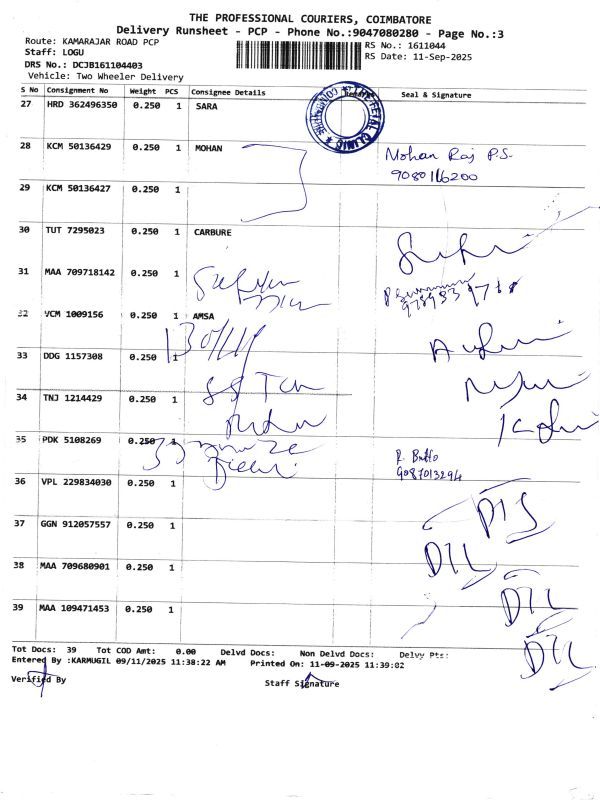 THE PROFESSIONAL COURIERS, COIMBATORE
Delivery Runsheet - PCP - Phone No.:9047080280 - Page No.:3
Route: KAMARAJAR ROAD PCP
Staff: LOGU
DRS No.: DCJB161104403
Vehicle: Two Wheeler Delivery
RS No.: 1611044
RS Date: 11-Sep-2025
S No Consignment No Weight PCS Consignee Details Seal & Signature
27 HRD 362496350 0.250 1 SARA
28 KCM 50136429 0.250 1 MOHAN Mohan Raj P.S.
9080116200
29 KCM 50136427 0.250 1
30 TUT 7295023 0.250 1 CARBURE
31 MAA 709718142 0.250 1
32 VCM 1009156 0.250 1 AMSA
33 DDG 1157308 0.250 1
34 TNJ 1214429 0.250 1
35 PDK 5108269 0.250 1
R.
9087013294
36 VPL 229834030 0.250 1
37 GGN 912057557 0.250 1 DTL
38 MAA 709680901 0.250 1 DTL
39 MAA 109471453 0.250 1 DTL
Tot Docs: 39 Tot COD Amt: 0.00 Delvd Docs: Non Delvd Docs: Delvy Pts:
Entered By :KARMUGIL 09/11/2025 11:38:22 AM Printed On: 11-09-2025 11:39:02
Verified By Staff Signature